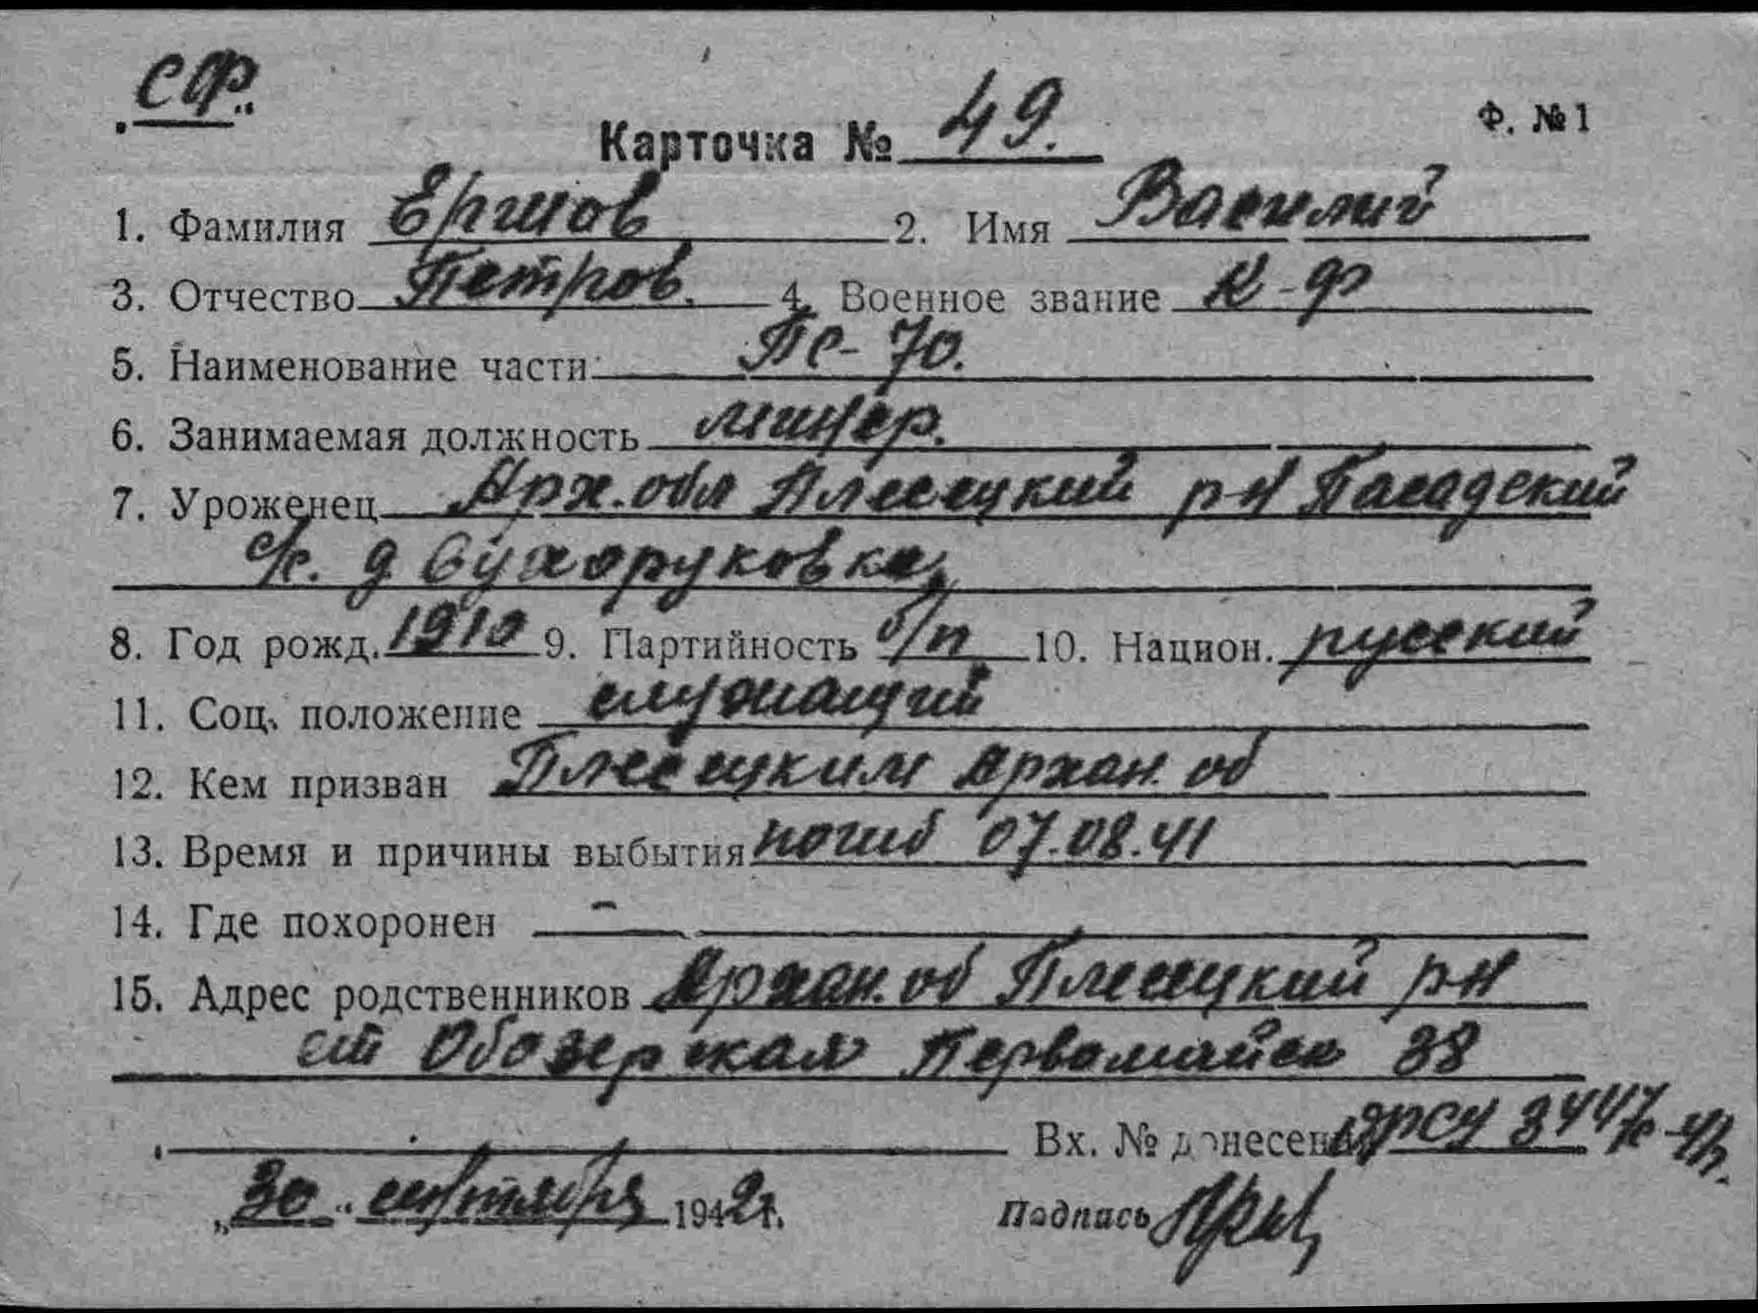 СФ.
Карточка № 49. Ф. № 1
1. Фамилия Ершов 2. Имя Василий
3. Отчество Петров. 4. Военное звание К-ф
5. Наименование части ПС-70.
6. Занимаемая должность минёр.
7. Уроженец Арх. обл Плесецкий р-н Пасадский
с/с. д Сухоруковка,
8. Год рожд. 1910 9. Партийность б/п 10. Национ. русский
11. Соц. положение служащий
12. Кем призван Плесецким Архан. об
13. Время и причины выбытия погиб 07.08.41
14. Где похоронен –
15. Адрес родственников Архан. об Плесецкий р-н
ст Обозерская Первомайск 38
Вх. № донесения 3447с
„30" сентября 1942г.
Подпись